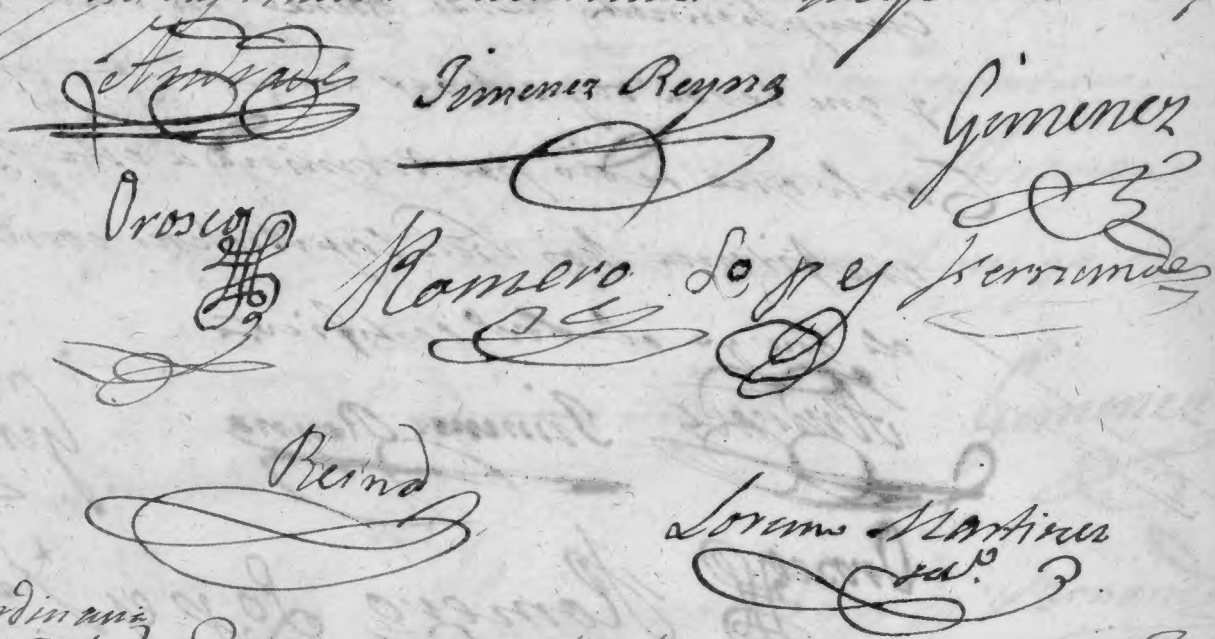 Andrade Jimenez Reyna Gimenez
Orosco Romero Lopez Fernandez
Reina
Lorenzo Martinez